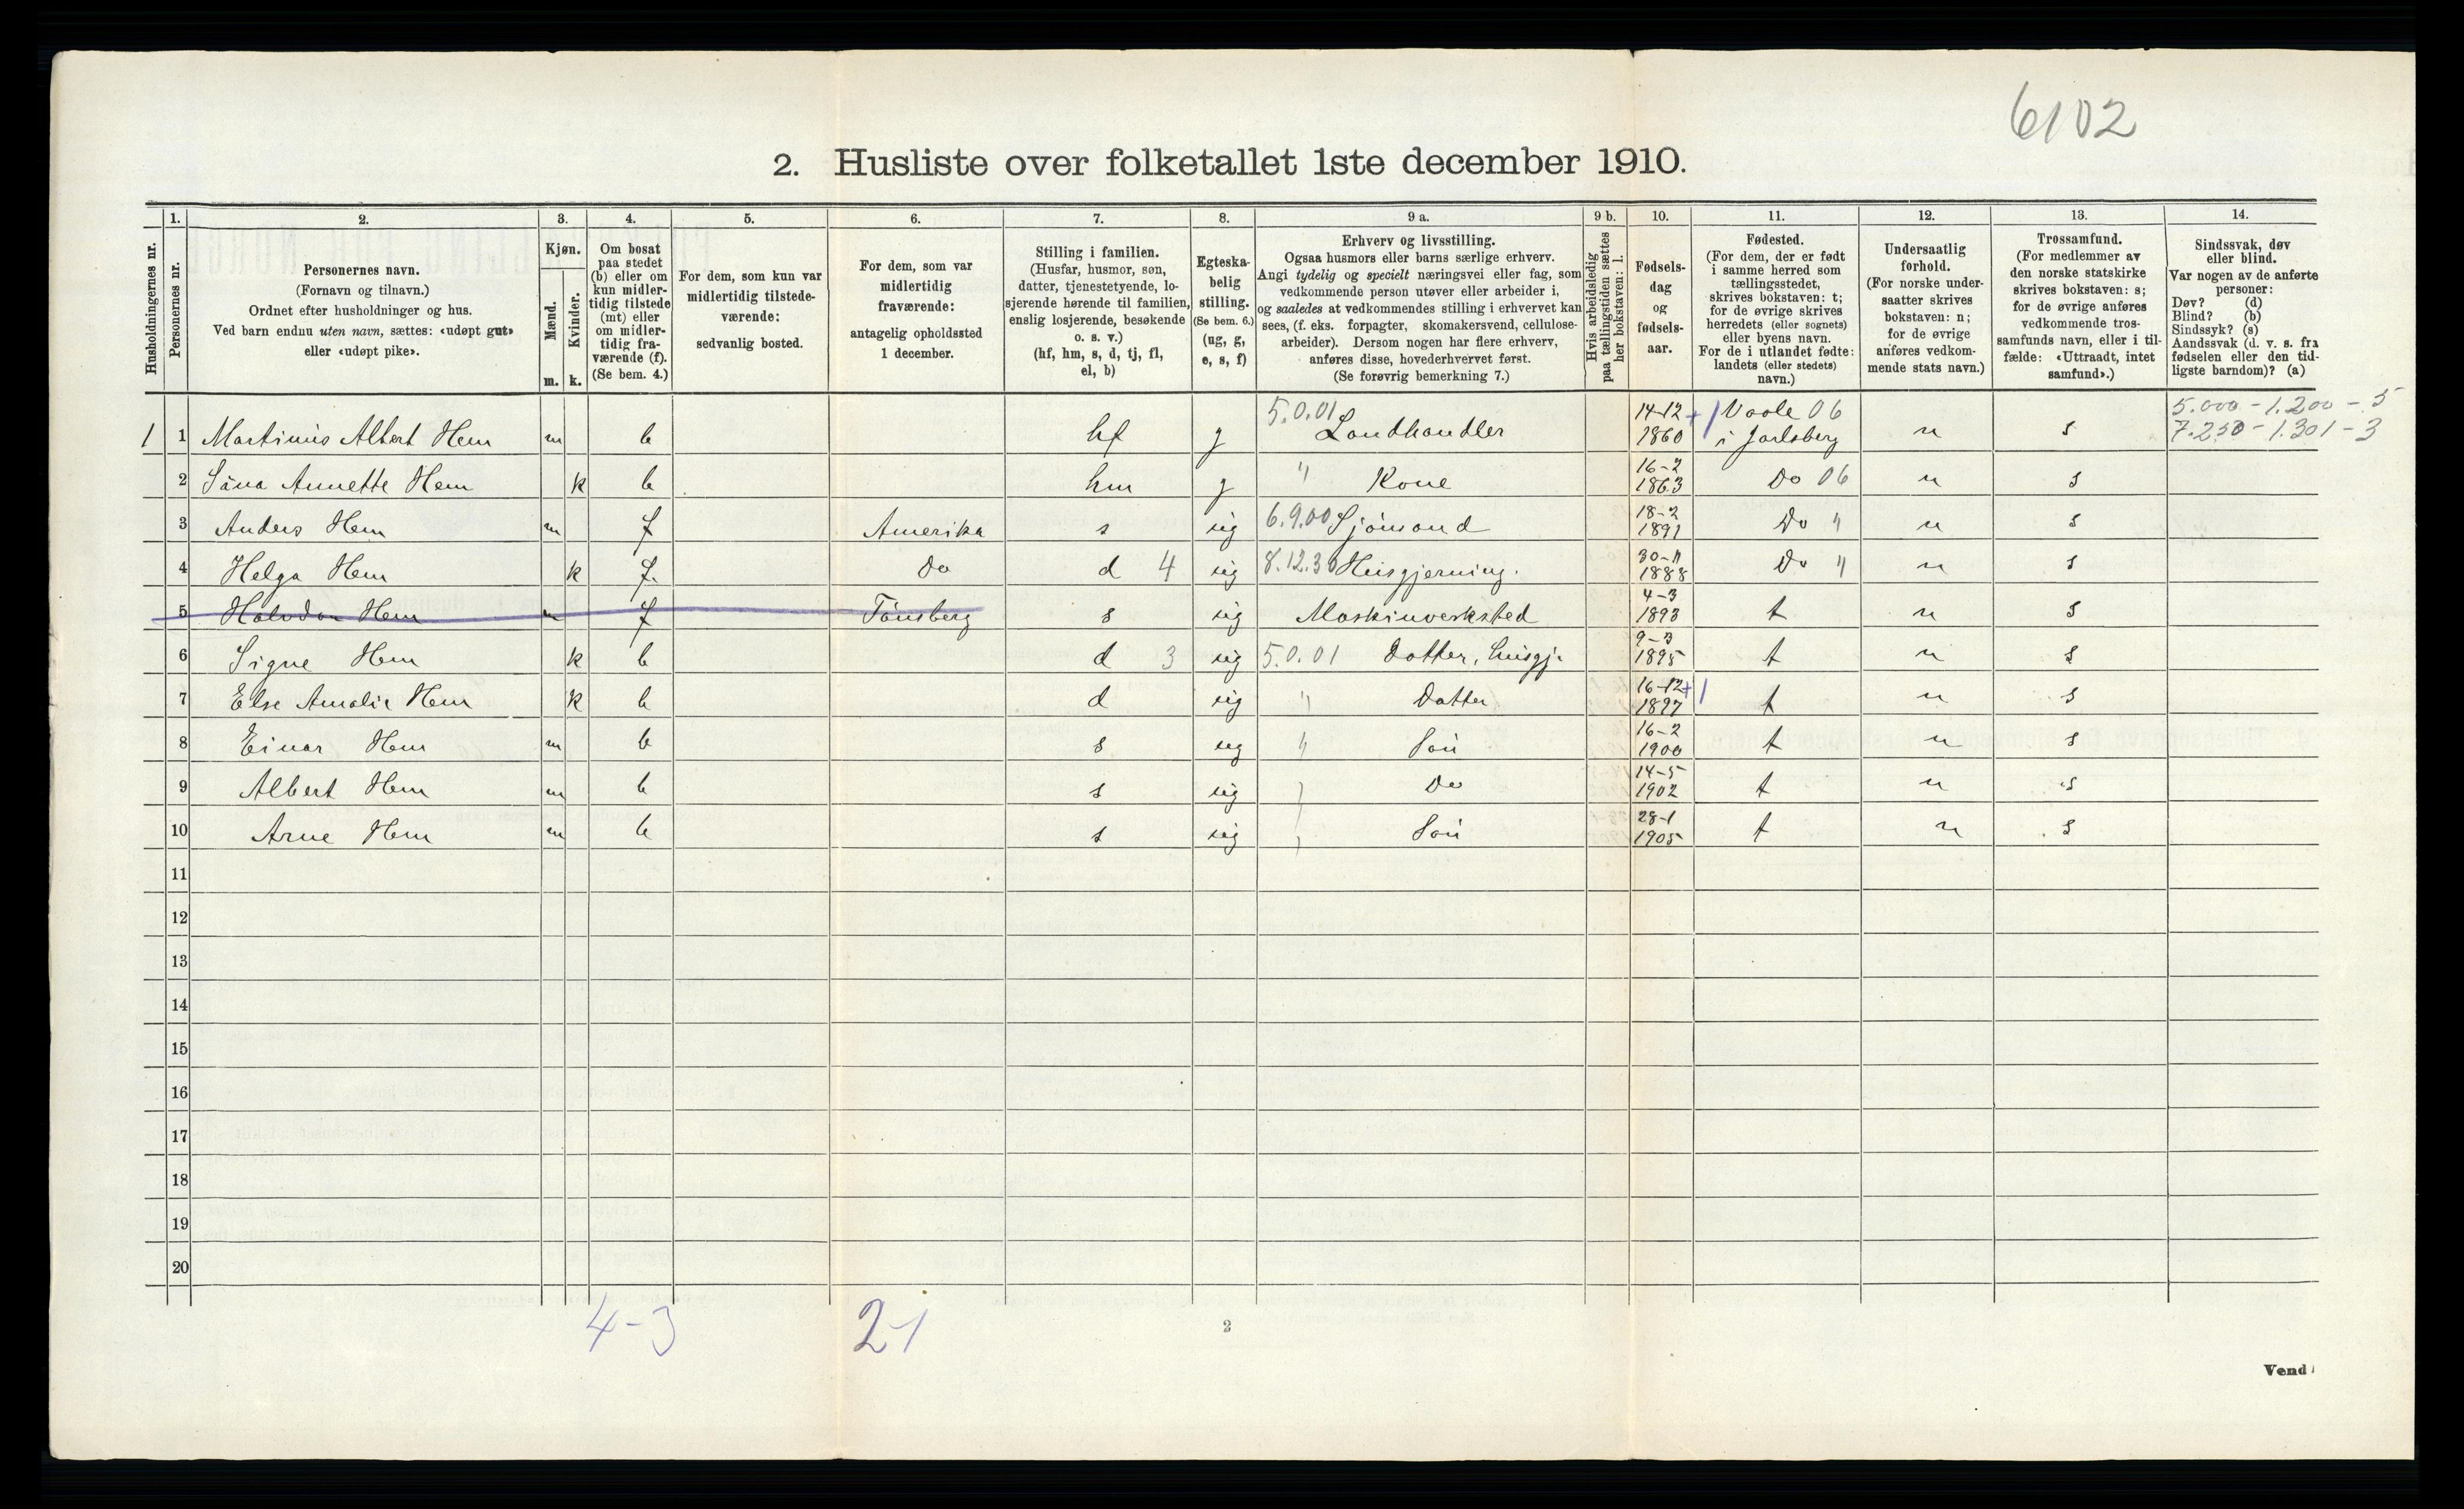 6102
2. Husliste over folketallet 1ste december 1910.
Husholdningernes nr.
1.
Personernes nr.
2.
Personernes navn.
(Fornavn og tilnavn.)
Ordnet efter husholdninger og hus.
Ved barn endnu uten navn, sættes: «udøpt gut»
eller «udøpt pike».
3.
Kjøn.
Mænd.
Kvinder.
m. k.
4.
Om bosat
paa stedet
(b) eller om
kun midler-
tidig tilstede
(mt) eller
om midler-
tidig fra-
værende (f).
(Se bem. 4.)
5.
For dem, som kun var
midlertidig tilstede-
værende:
sedvanlig bosted.
6.
For dem, som var
midlertidig
fraværende:
antagelig opholdssted
1 december.
7.
Stilling i familien.
(Husfar, husmor, søn,
datter, tjenestetyende, lo-
sjerende hørende til familien,
enslig losjerende, besøkende
o. s. v.)
(hf, hm, s, d, tj, fl,
el, b)
8.
Egteska-
belig
stilling.
(Se bem. 6.)
(ug, g,
e, s, f)
9 a.
Erhverv og livsstilling.
Ogsaa husmors eller barns særlige erhverv.
Angi tydelig og specielt næringsvei eller fag, som
vedkommende person utøver eller arbeider i,
og saaledes at vedkommendes stilling i erhvervet kan
sees, (f. eks. forpagter, skomakersvend, cellulose-
arbeider). Dersom nogen har flere erhverv,
anføres disse, hovederhvervet først.
(Se forøvrig bemerkning 7.)
9 b.
Hvis arbeidsledig
paa tællingstiden sættes
her bokstaven: l.
10.
Fødsels-
dag
og
fødsels-
aar.
11.
Fødested.
(For dem, der er født
i samme herred som
tællingsstedet,
skrives bokstaven: t;
for de øvrige skrives
herredets (eller sognets)
eller byens navn.
For de i utlandet fødte:
landets (eller stedets)
navn.)
12.
Undersaatlig
forhold.
(For norske under-
saatter skrives
bokstaven: n;
for de øvrige
anføres vedkom-
mende stats navn.)
13.
Trossamfund.
(For medlemmer av
den norske statskirke
skrives bokstaven: s;
for de øvrige anføres
vedkommende tros-
samfunds navn, eller i til-
fælde: «Uttraadt, intet
samfund».)
14.
Sindssvak, døv
eller blind.
Var nogen av de anførte
personer:
Døv? (d)
Blind? (b)
Sindssyk? (s)
Aandssvak (d. v. s. fra
fødselen eller den tid-
ligste barndom)? (a)
1 1 Martinius Albert Hem m b hf g 5.0.01 Landhandler 14-12 1860 +1 Vaale 06 i Jarlsberg n s 5.000 - 1.200 - 5
7.250 - 1.301 - 3
2 Annette Hem k b hm g " Kone 16-2 1863 Do 06 n s
3 Anders Hem m f Amerika s ug 6.9.00 Sjömand 18-2 1891 Do " n s
4 Helga Hem k f. Do d 4 ug 8.12.30 Husgjerning. 30-11 1888 Do " n s
5 Halvdan Hem m f Tönsberg s ug Maskinverksted 4-3 1893 t n s
6 Signe Hem k b d 3 ug 5.0.01 Datter, husgj. 9-3 1895 t n s
7 Else Amalie Hem k b d ug " Datter 16-12 1897 +1 t n s
8 Einar Hem m b s ug " Sön 16-2 1900 t n s
9 Albert Hem m b s ug " Do 14-5 1902 t n s
10 Arne Hem m b s ug " Sön 28-1 1905 t n s
11
12
13
14
15
16
17
18
19
20
4-3 2-1
2
Vend